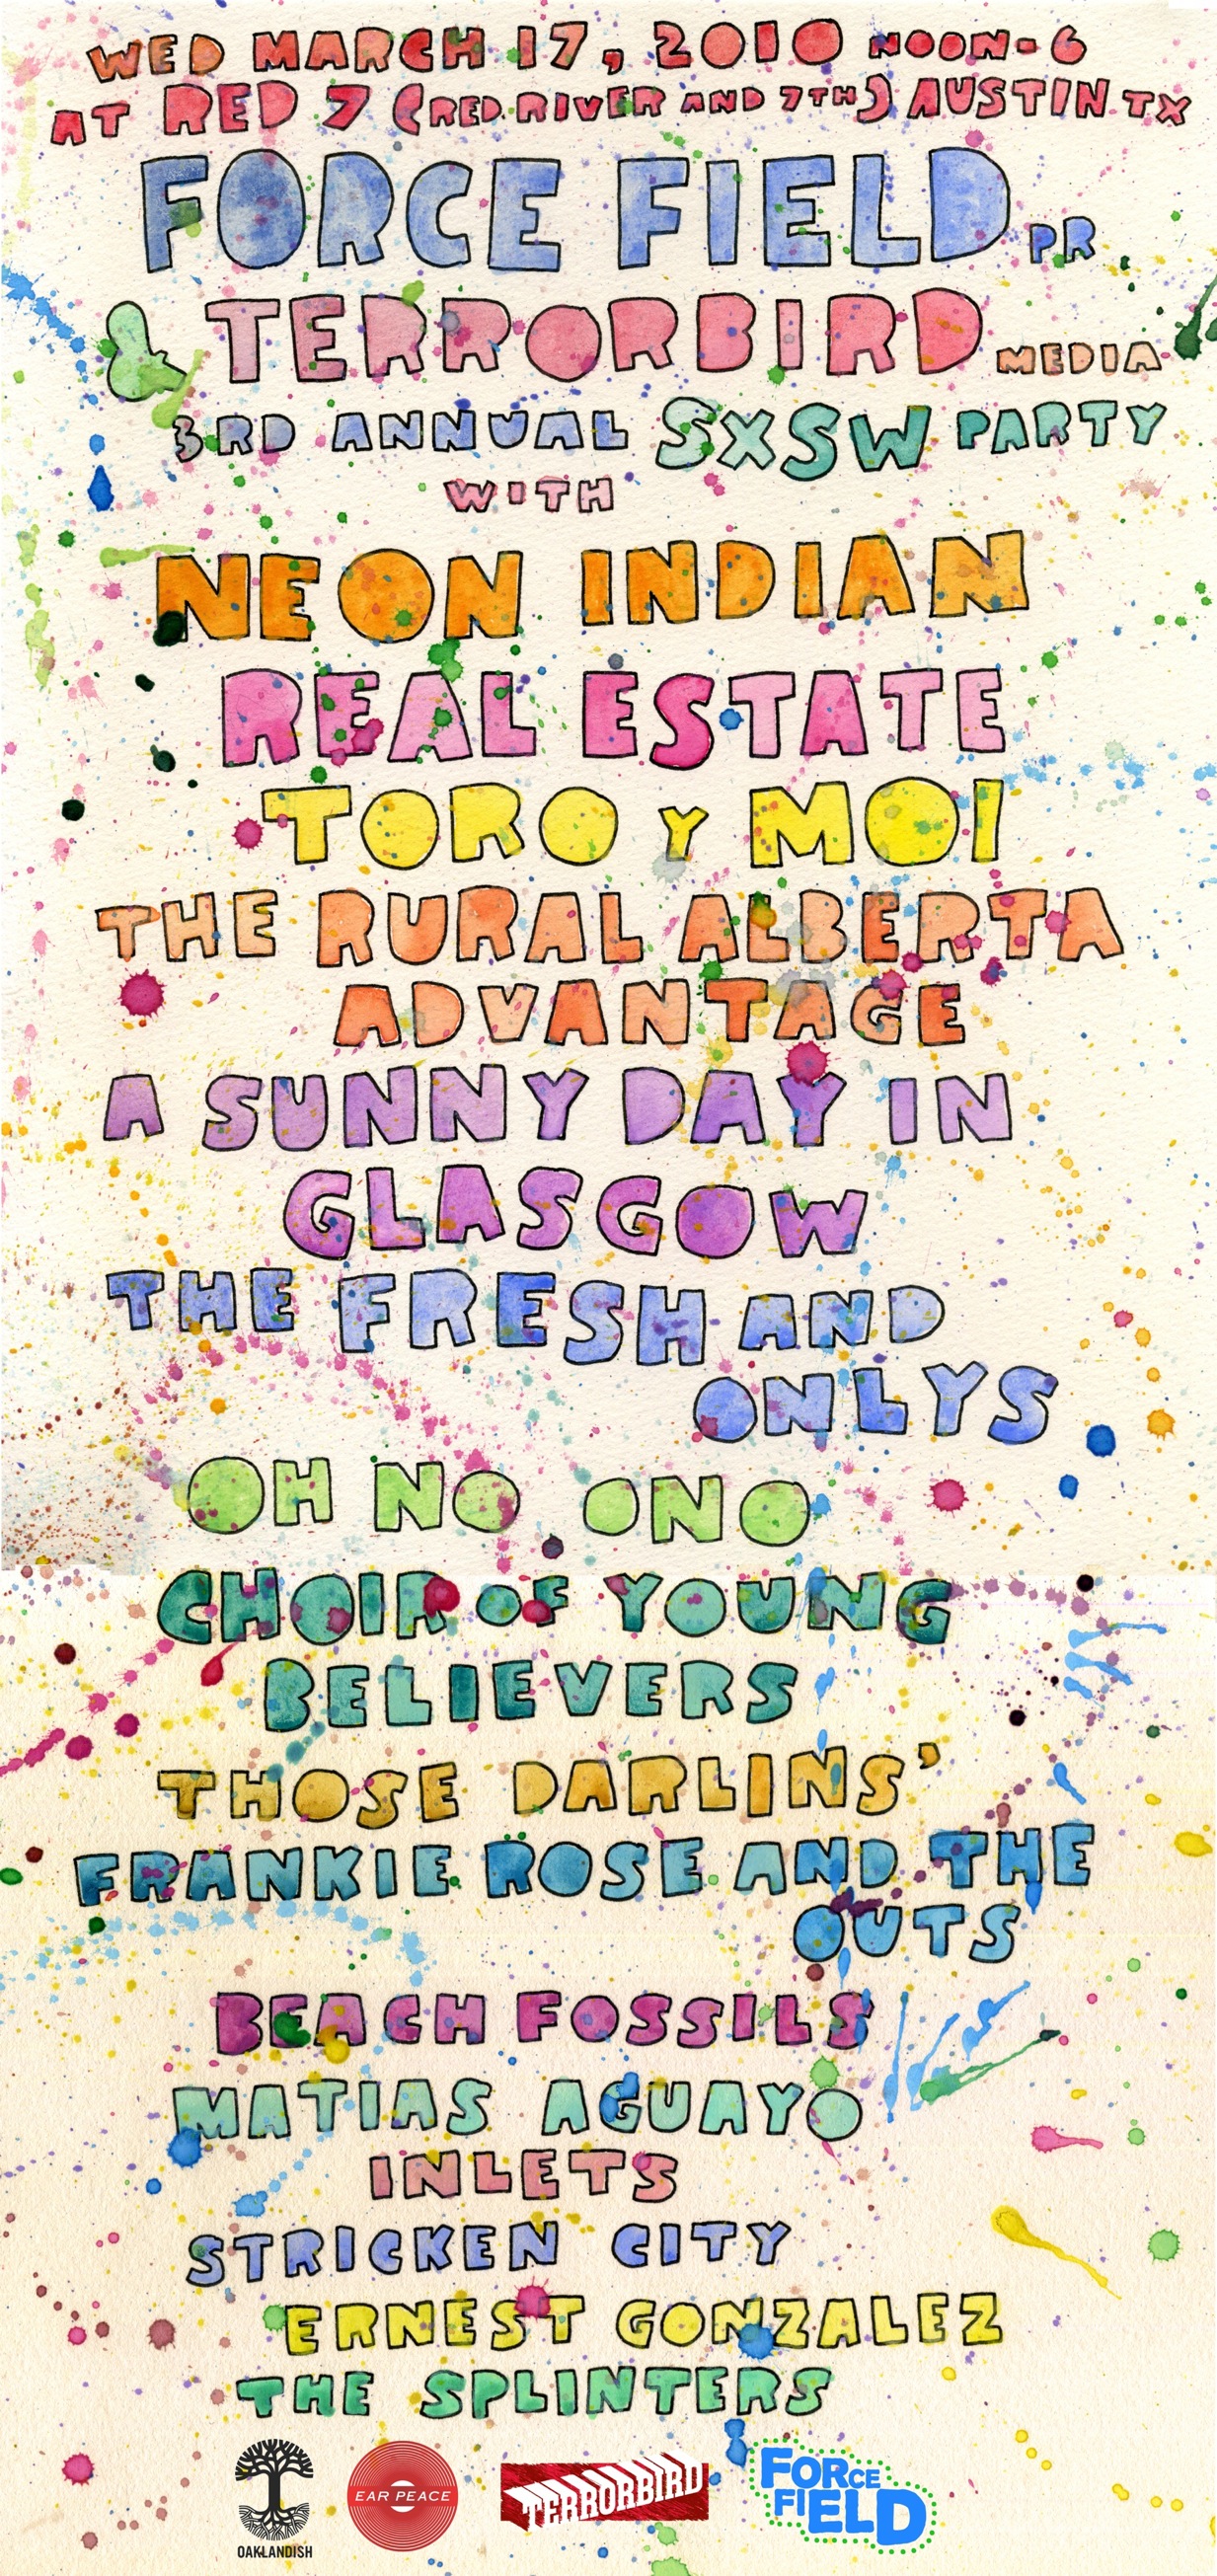 WED MARCH 17, 2010 NOON-6
AT RED 7 (RED RIVER AND 7TH) AUSTIN TX
FORCE FIELD PR
& TERRORBIRD MEDIA
3RD ANNUAL SXSW PARTY
WITH
NEON INDIAN
REAL ESTATE
TORO Y MOI
THE RURAL ALBERTA
ADVANTAGE
A SUNNY DAY IN
GLASGOW
THE FRESH AND
ONLYS
OH NO ONO
CHOIR OF YOUNG
BELIEVERS
THOSE DARLINS'
FRANKIE ROSE AND THE
OUTS
BEACH FOSSILS
MATIAS AGUAYO
INLETS
STRICKEN CITY
ERNEST GONZALEZ
THE SPLINTERS
OAKLANDISH
EAR PEACE
TERRORBIRD
FORCE
FIELD